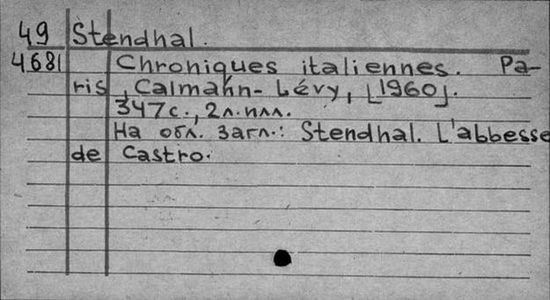 49 Stendhal.
4681 Chroniques italiennes. Pa-
ris, Calmann-Lévy, [1960].
347с., 2л.илл.
На обл. загл.: Stendhal. L'abbesse
de Castro.